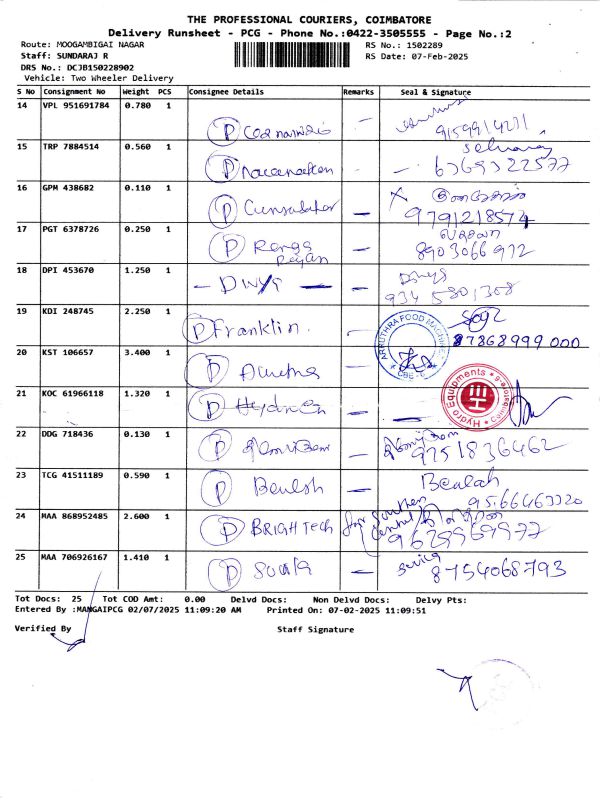 THE PROFESSIONAL COURIERS, COIMBATORE
Delivery Runsheet - PCG - Phone No.:0422-3505555 - Page No.:2
Route: MOOGAMBIGAI NAGAR
RS No.: 1502289
Staff: SUNDARAJ R
RS Date: 07-Feb-2025
DRS No.: DCJB150228902
Vehicle: Two Wheeler Delivery
S No Consignment No Weight PCS Consignee Details Remarks Seal & Signature
14 VPL 951691784 0.780 1
P
15 TRP 7884514 0.560 1
P 6369322577
16 GPM 438682 0.110 1
P 9791218574
17 PGT 6378726 0.250 1
P Ranga Rajan 8903066972
18 DPI 453670 1.250 1
- Divya - Divya
934 5801308
19 KDI 248745 2.250 1
P Franklin. 87868999000
ARRUTHRA FOOD MACHINE
CBE
20 KST 106657 3.400 1
P
21 KOC 61966118 1.320 1
P Hydro Equipments Coimbatore
22 DDG 718436 0.130 1
P 9751836462
23 TCG 41511189 0.590 1
P Beulah Beulah
9566463320
24 MAA 868952485 2.600 1
P BRIGHTECH for Southern
9629969977
25 MAA 706926167 1.410 1
P 8754068793
Tot Docs: 25 Tot COD Amt: 0.00 Delvd Docs: Non Delvd Docs: Delvy Pts:
Entered By :MANGAIPCG 02/07/2025 11:09:20 AM Printed On: 07-02-2025 11:09:51
Verified By Staff Signature